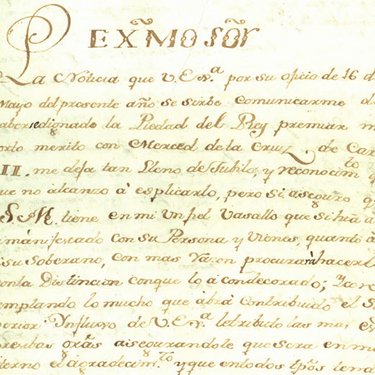 EXMO SOR
La Noticia que V.Exa. por su oficio de 16 d
Mayo del presente año se sirbe comunicarme d
aberse dignado la Piedad del Rey premiar m
orto merito con Merced de la Cruz de Car
III. me deja tan lleno de Jubilo, y reconocim to
ue no alcanzo á esplicarlo, pero si aseguro q
S.M. tiene en mi un fiel Vasallo que si hta a
manifestado con su Persona y Vienes, quanto á
su Soberano, con mas razon procurará hacerl
onla Distincion conque lo á condecorado; Ya
templando lo mucho que abrá contribuido el S
erior Ynfluxo de V.Exa. le tribudo las mas e
resibas gras aiseourandole que sera en m
terno el agradecimto y que en todos tpos tend